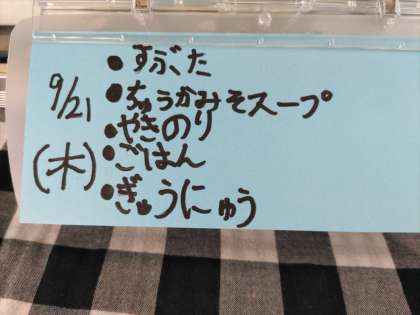 9/21
(木)
●すぶた
●ちゅうかみそスープ
●やきのり
●ごはん
●ぎゅうにゅう